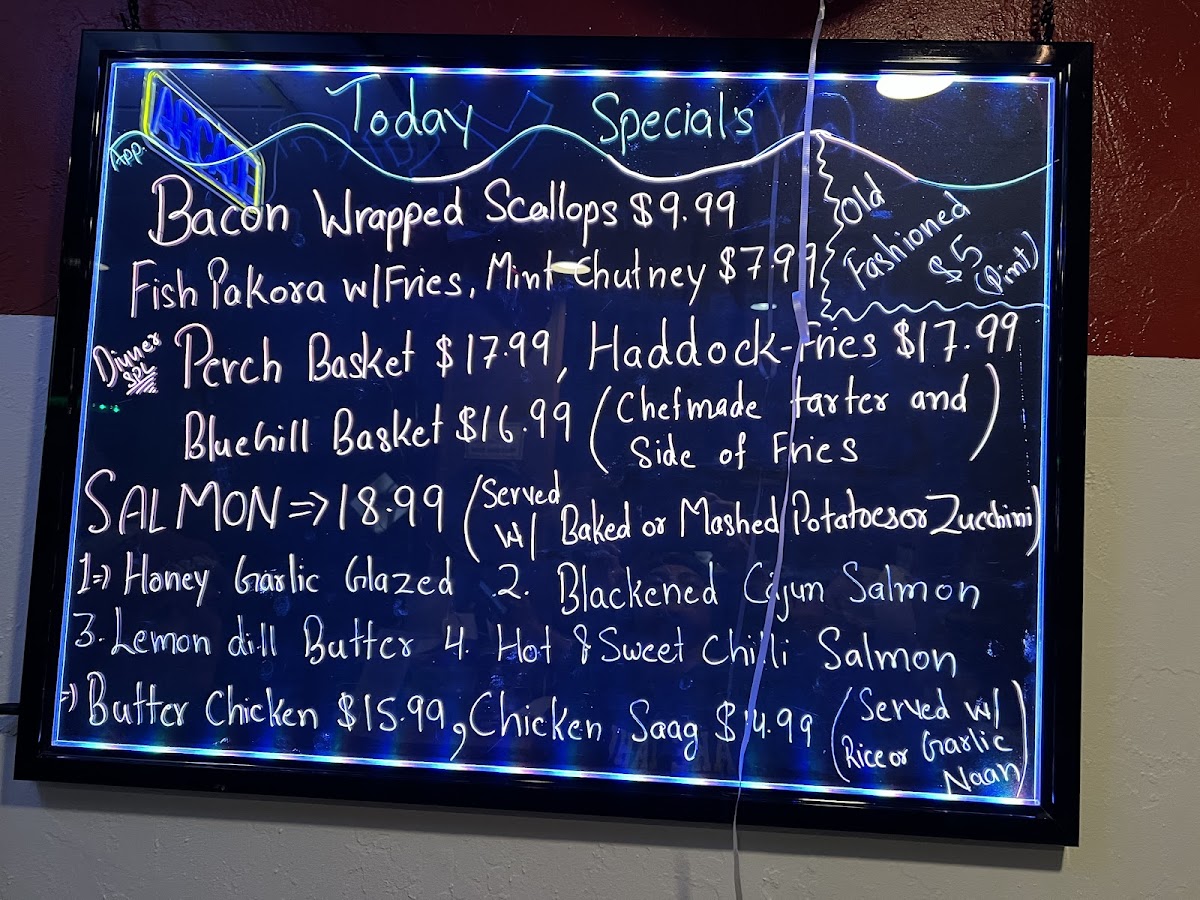 Today Special's
ARCADE
App.
Bacon Wrapped Scallops $9.99
Fish Pakora w/Fries, Mint Chutney $7.99
Old
Fashioned
$5
(Pint)
Dinner
SPL
Perch Basket $17.99, Haddock-Fries $17.99
Bluehill Basket $16.99 (Chefmade tarter and
Side of Fries)
SALMON => 18.99 (Served
w/ Baked or Mashed Potatoes or Zucchini)
1=) Honey Garlic Glazed 2. Blackened Cajun Salmon
3. Lemon dill Butter 4. Hot & Sweet Chilli Salmon
=) Butter Chicken $15.99, Chicken Saag $14.99 (Served w/
Rice or Garlic
Naan)